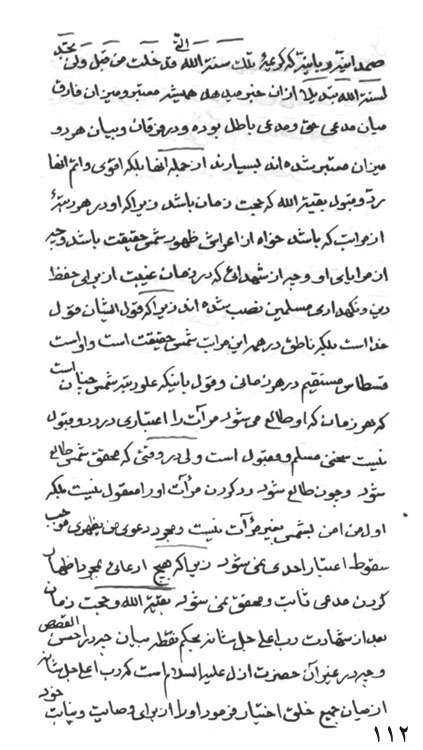 التی
صمدانیه و ربانیه که کریمهٔ تلک سنة الله قد خلت من قبل ولن تجد
لسنة الله تبدیلا از آن خبر میدهد همیشه معتبر و میزان فارق
میان مدعی حق و مدعی باطل بوده و در فرقان و بیان هر دو
میزان معتبر شده اند بسیارند از جمله انها بلکه اقوی و اتم انها
رد و قبول بقیة الله که حجت زمان باشد زیرا که او در هر رتبهٔ
از مراتب که باشد خواه از اعراش ظهور شمس حقیقت باشد و چه
از مرایای او و چه از شهدائی که در زمان غیبت از برای حفظ
دین و نگهداری مسلمین نصب شده اند زیرا که قول ایشان قول
خدا است بلکه ناطق در همه این مراتب شمس حقیقت است و او است
قسطاس مستقیم در هر زمانی و قول باینکه علو رتبه شمس چنان است
که هر زمان که او طالع می شود مرآت را اعتباری در رد و قبول
نیست سخنی مسلم و مقبول است ولی در وقتی که محقق شمس طالع
شود و چون طالع شود رد کردن مرآت او را معقول نیست بلکه
اول من امن بشمس بغیر مرآت نیست و مجرد دعوی من یظهری موجب
سقوط اعتبار احدی نمی شود زیرا که هیچ ادعائی بمجرد اظهار
کردن مدعی ثابت و محقق نمی شود بقیة الله و حجت زمان
بعد از شهادت رب اعلی جل شانه بحکم نقطه بیان چه در احسن القصص
و چه در غیر آن حضرت ازل علیه السلام است که رب اعلی جل شانه
از میان جمیع خلق اختیار فرمود او را از برای وصایت و نیابت خود
۱۱۲